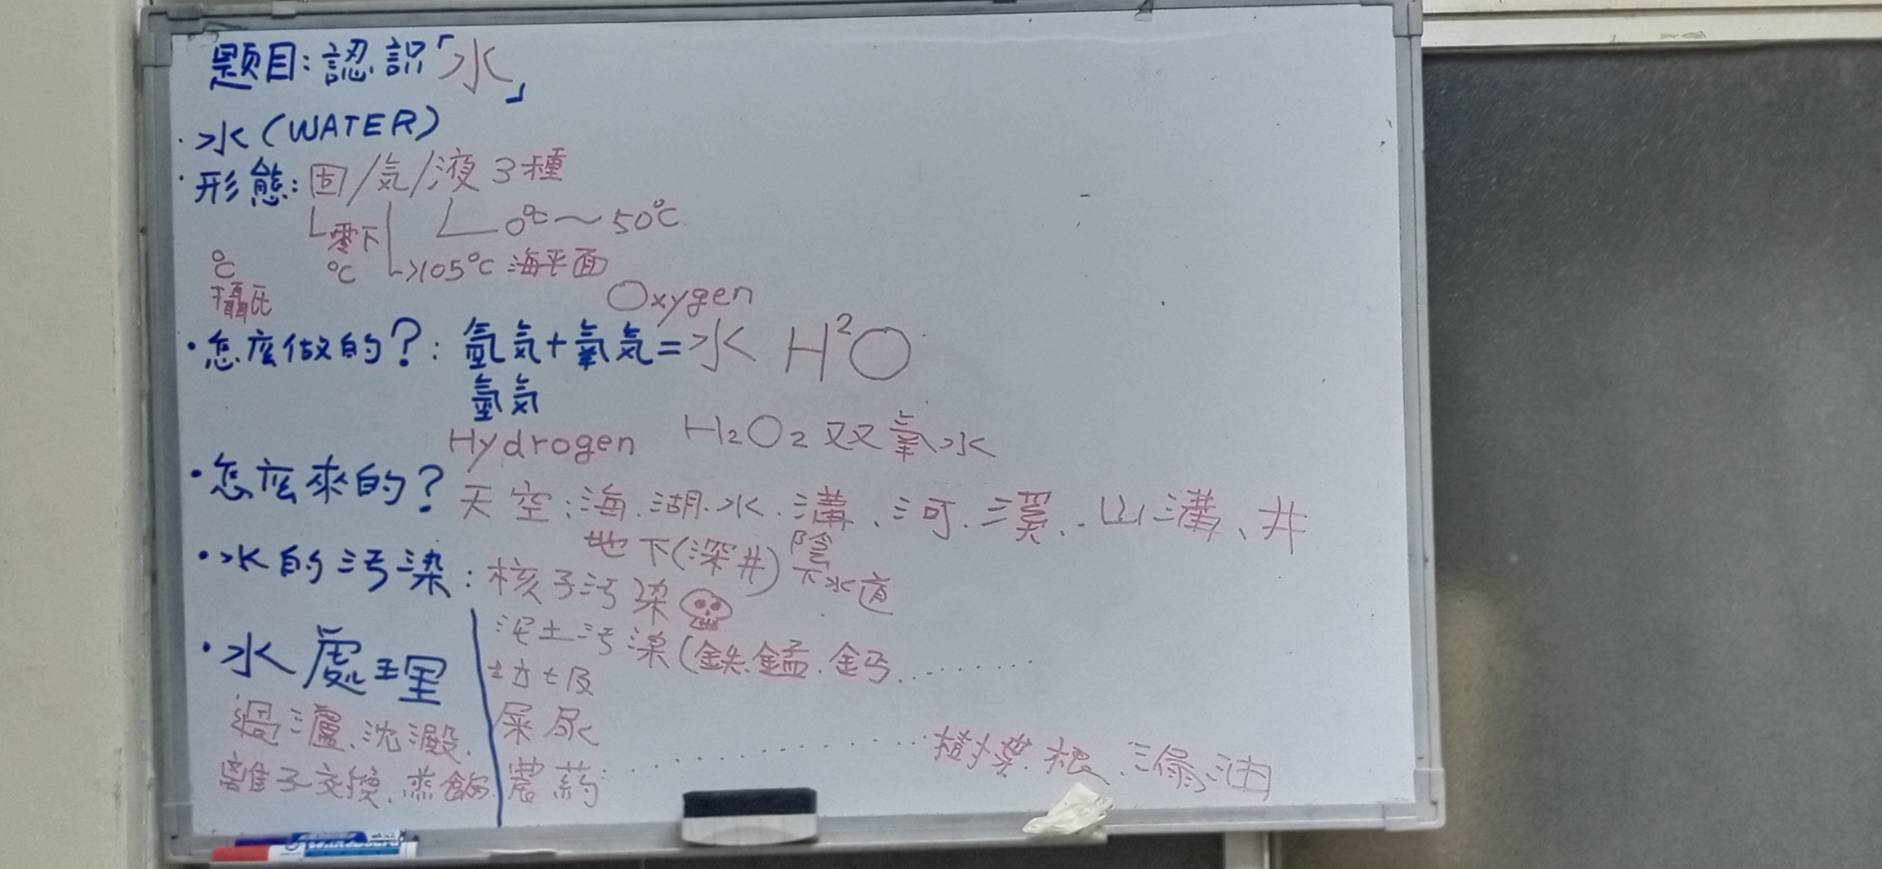 題目:認識「水」
·水(WATER)
·形態:固/気/液3種
零下 0℃~50℃
℃ ℃ >105℃ 海平面
攝氏 Oxygen
·怎庅做的?:氫気+氧気=水 H²O
氫気
Hydrogen H₂O₂ 双氧水
·怎庅來的? 天空:海.湖.水.溝、河.溪..山溝、井
地下(深井) 陰下水道
·水的污染:核子污染
泥土污染(鉄.錳.鈣.........
·水處理 垃圾
過濾、沈澱、 屎尿
離子交換.蒸餾. 農葯:..............樹葉.根、漏油